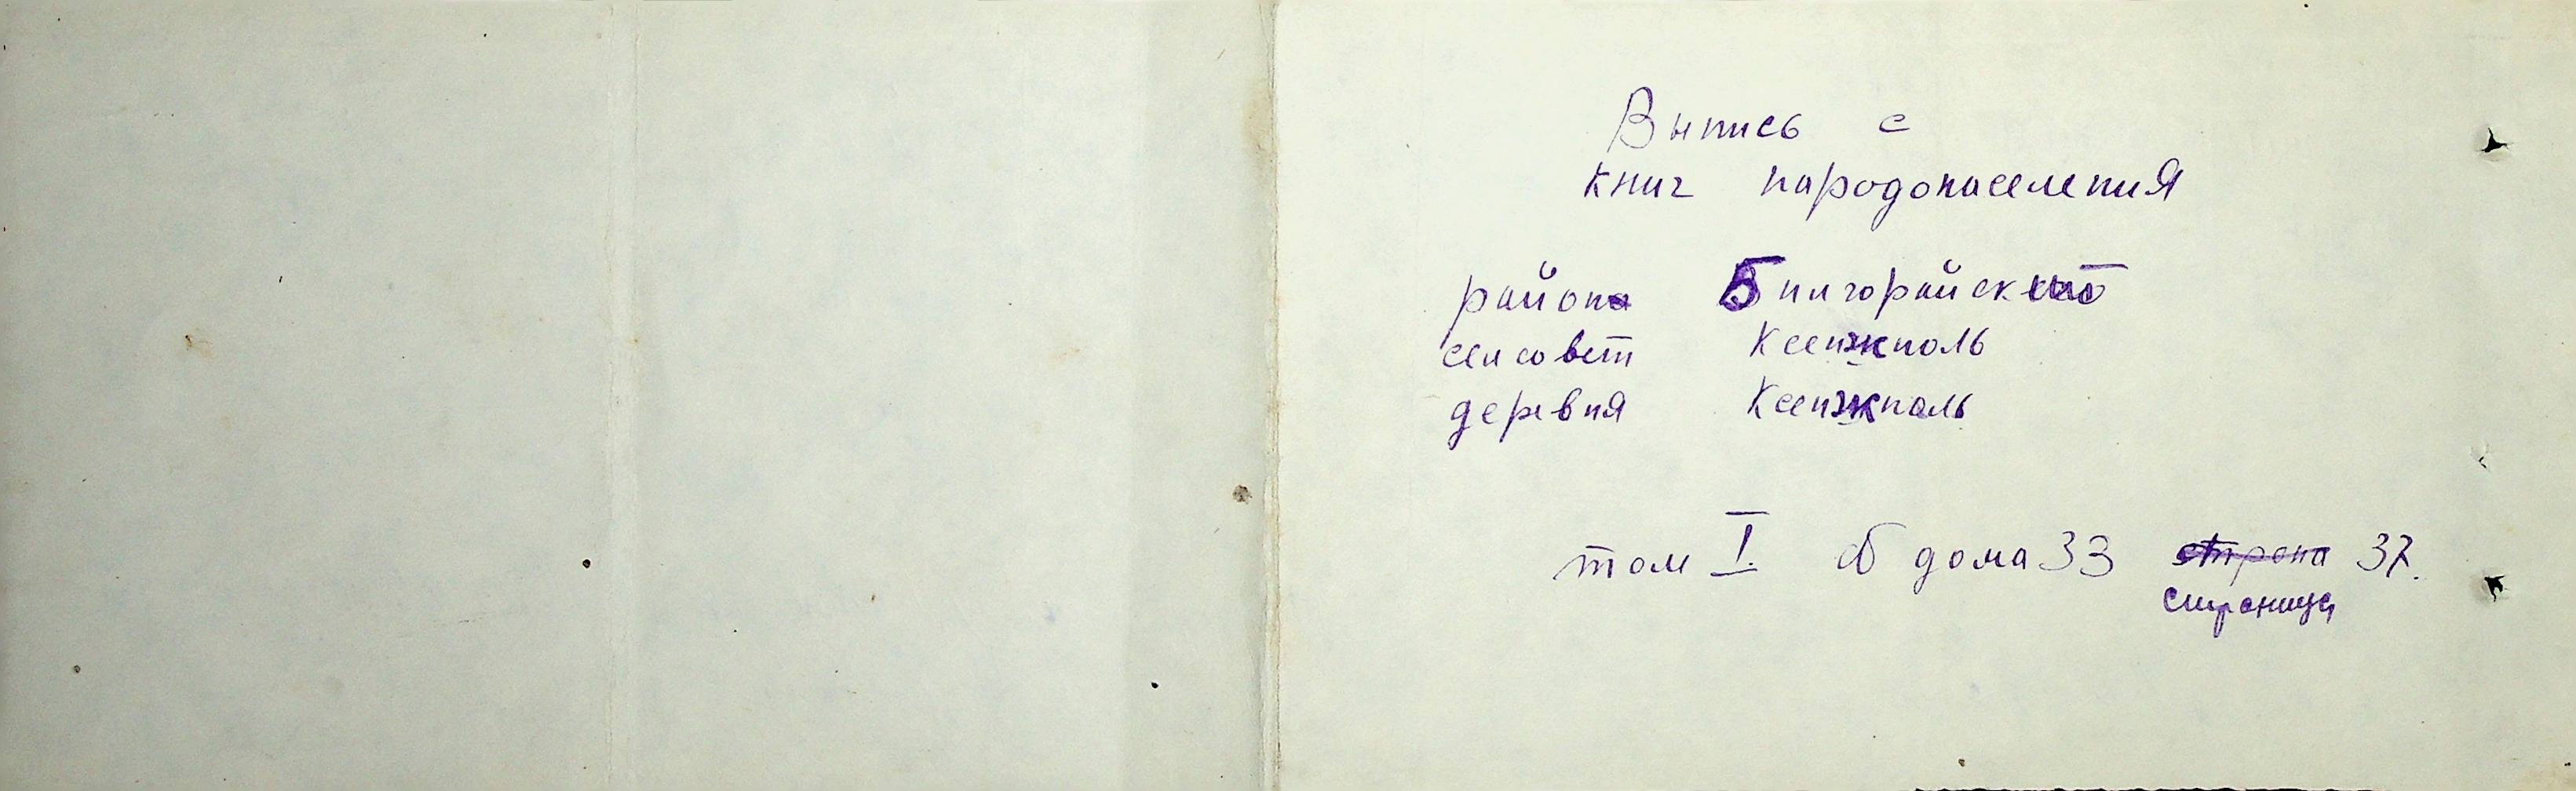 Выпись с
книг народонаселения
района Билгорайский
сельсовет Ксенжполь
деревня Ксенжполь
том I. дома 33 строна 37.
страница